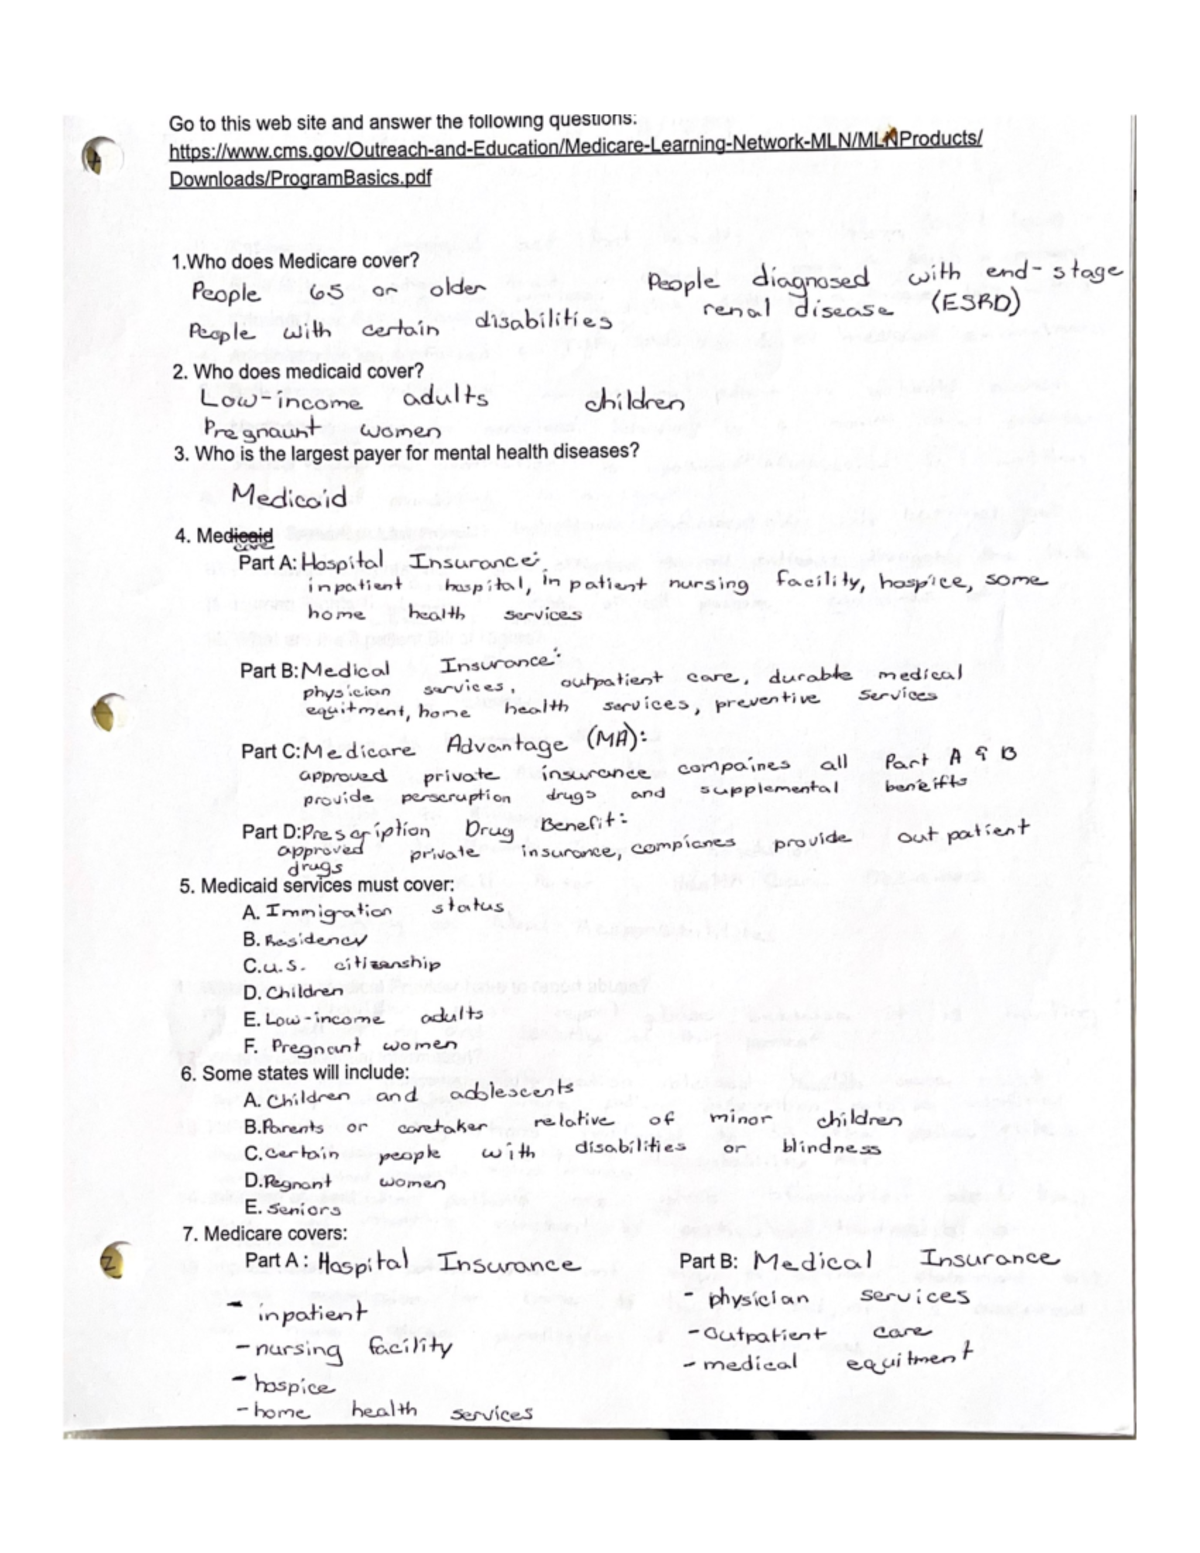 Go to this web site and answer the following questions:
https://www.cms.gov/Outreach-and-Education/Medicare-Learning-Network-MLN/MLNProducts/
Downloads/ProgramBasics.pdf
1.Who does Medicare cover?
People 65 or older
People with certain disabilities
People diagnosed with end-stage
renal disease (ESRD)
2. Who does medicaid cover?
Low-income adults children
Pregnaunt women
3. Who is the largest payer for mental health diseases?
Medicaid
4. Medicaid
care
Part A: Hospital Insurance:
inpatient hospital, inpatient nursing facility, hospice, some
home health services
Part B: Medical Insurance:
physician services, outpatient care, durable medical
equitment, home health services, preventive services
Part C: Medicare Advantage (MA):
approved private insurance compaines all Part A & B
provide perscruption drugs and supplemental beneifts
Part D: Prescription Drug Benefit:
approved private insurance, compianes provide outpatient
drugs
5. Medicaid services must cover:
A. Immigration status
B. Residency
C. U.S. citizenship
D. Children
E. Low-income adults
F. Pregnant women
6. Some states will include:
A. Children and adolescents
B. Parents or caretaker relative of minor children
C. Certain people with disabilities or blindness
D. Pegnant women
E. Seniors
7. Medicare covers:
Part A : Hospital Insurance
- inpatient
- nursing facility
- hospice
- home health services
Part B: Medical Insurance
- physician services
- Outpatient care
- medical equitment